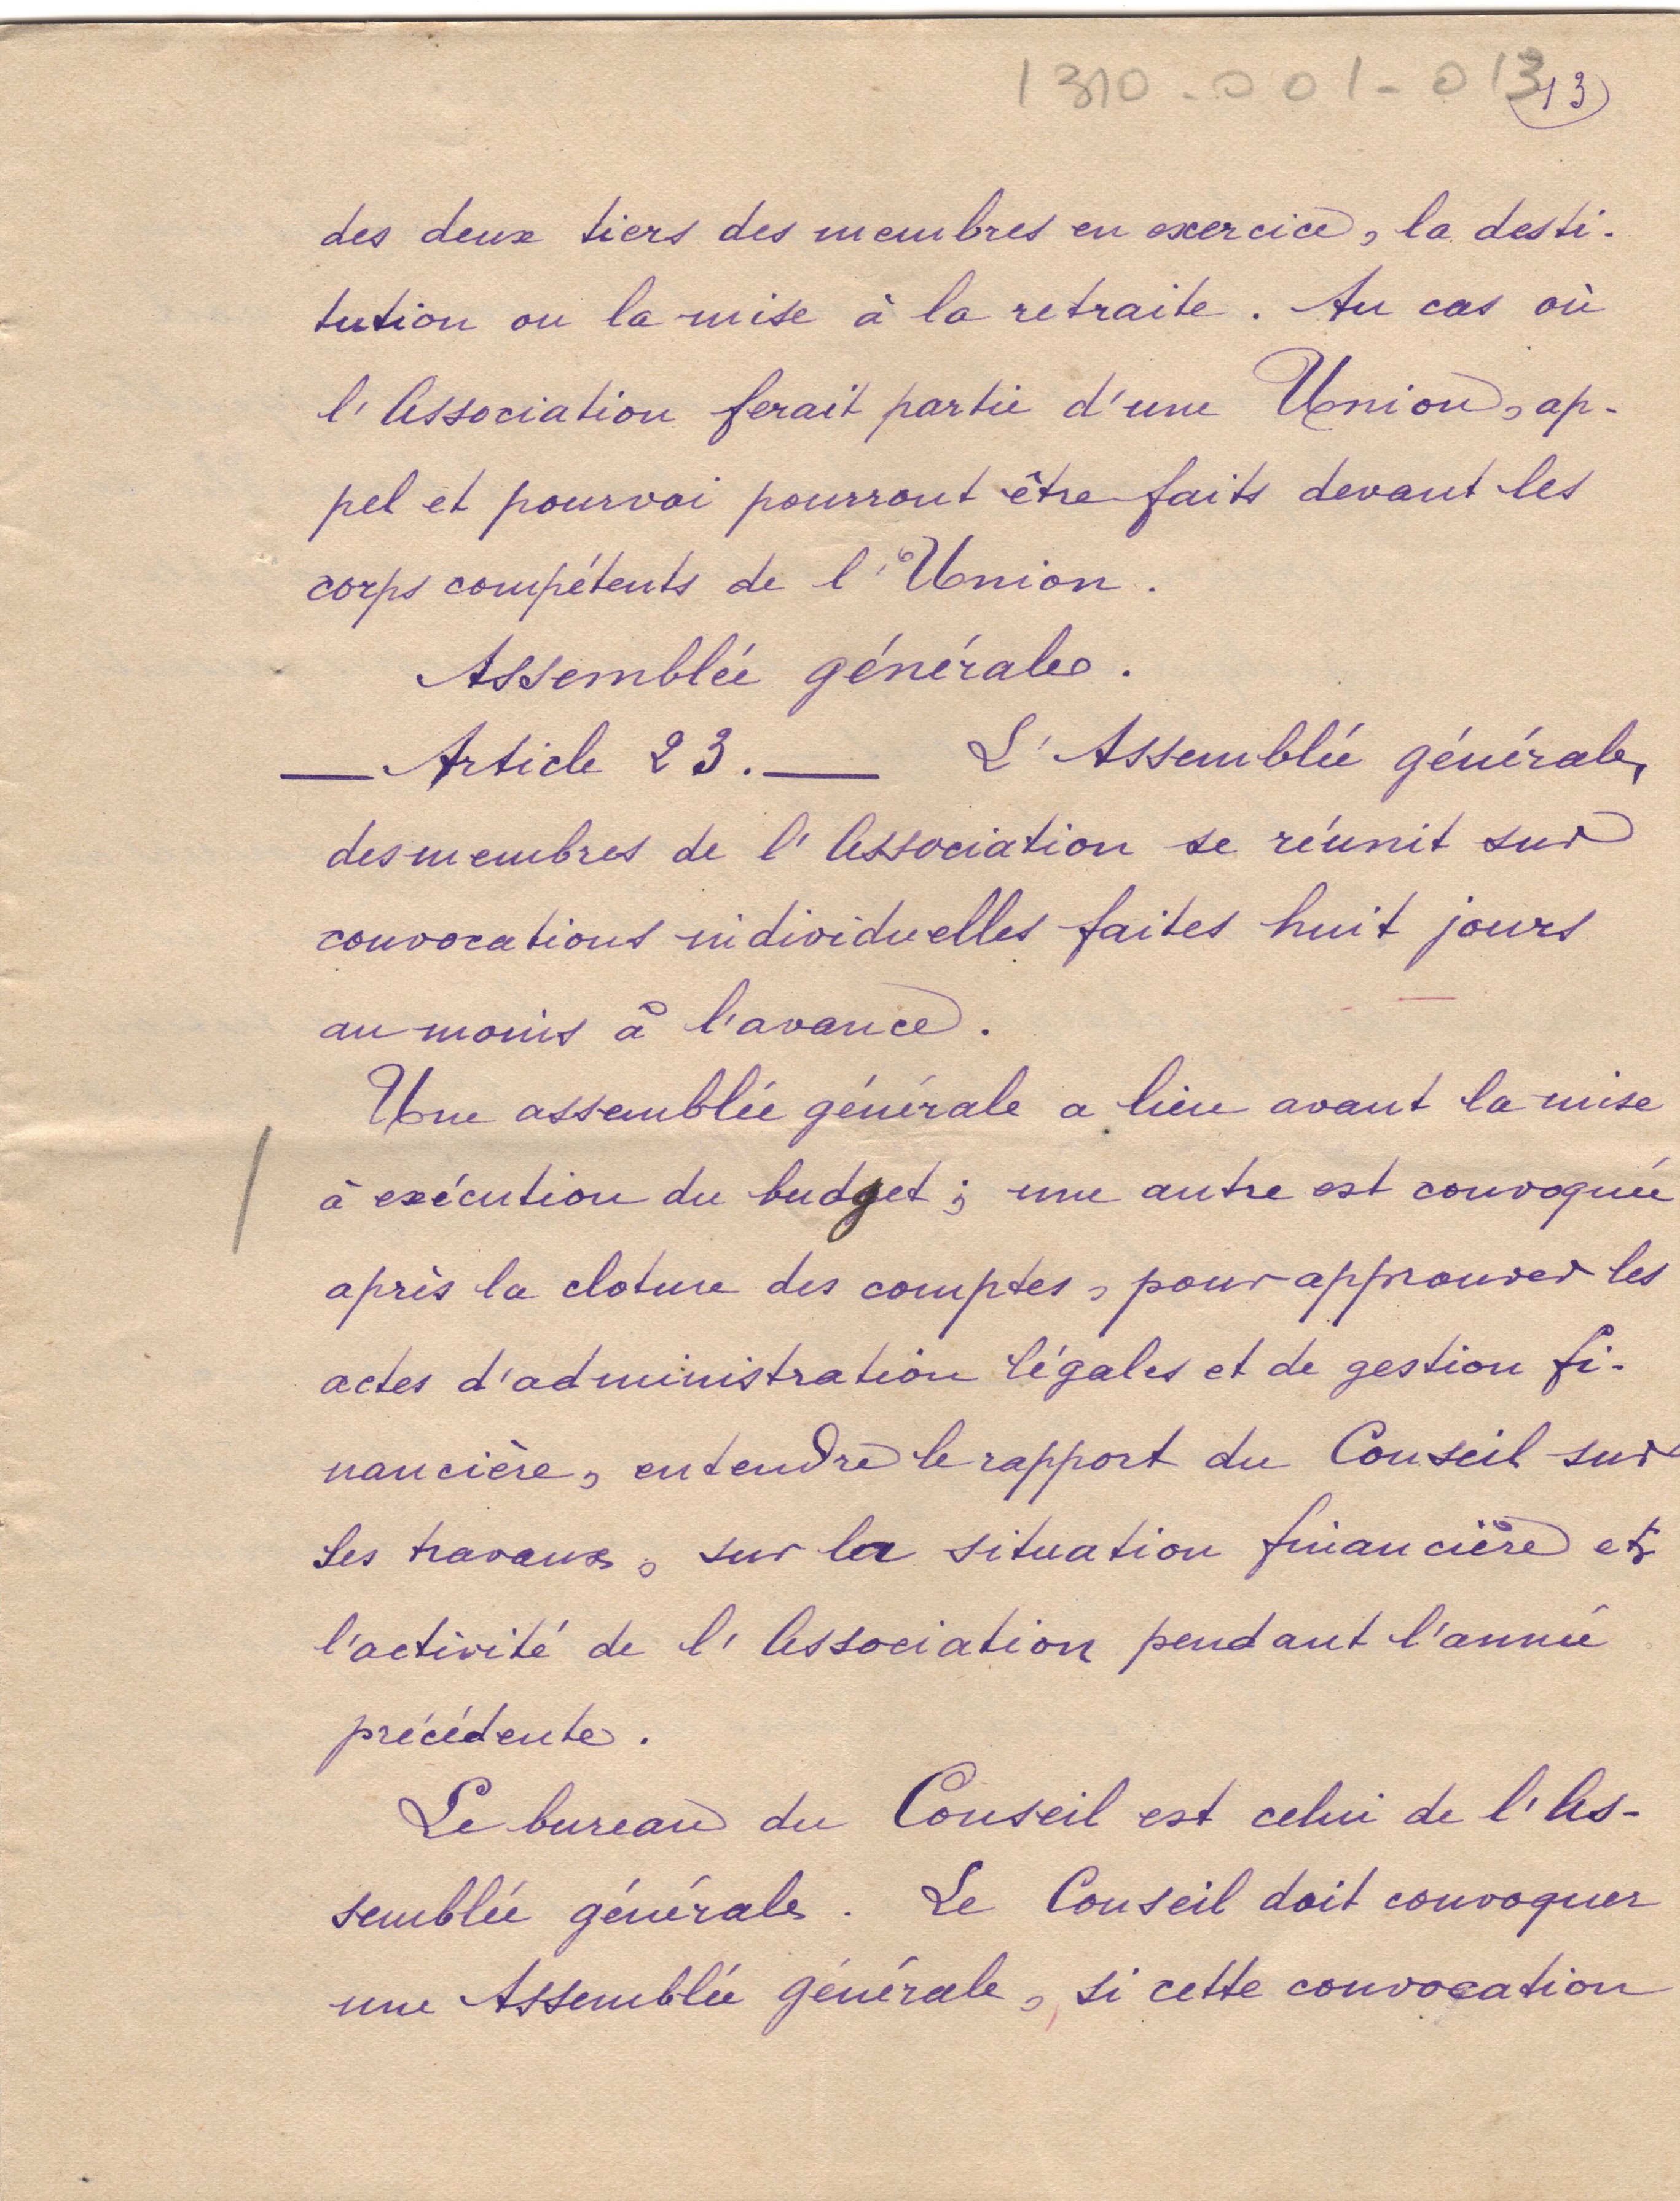 1310-001-013
13
des deux tiers des membres en exercice, la desti-
tution ou la mise à la retraite. Au cas où
l'Association ferait partie d'une Union, ap-
pel et pourvoi pourront être faits devant les
corps compétents de l'Union.
Assemblée générale.
— Article 23. — L'Assemblée générale,
des membres de l'Association se réunit sur
convocations individuelles faites huit jours
au moins à l'avance.
Une assemblée générale a lieu avant la mise
à exécution du budget; une autre est convoquée
après la cloture des comptes, pour approuver les
actes d'administration légales et de gestion fi-
nancière, entendre le rapport du Conseil sur
les travaux, sur la situation financière et
l'activité de l'Association pendant l'année
précédente.
Le bureau du Conseil est celui de l'As-
semblée générale. Le Conseil doit convoquer
une Assemblée générale, si cette convocation